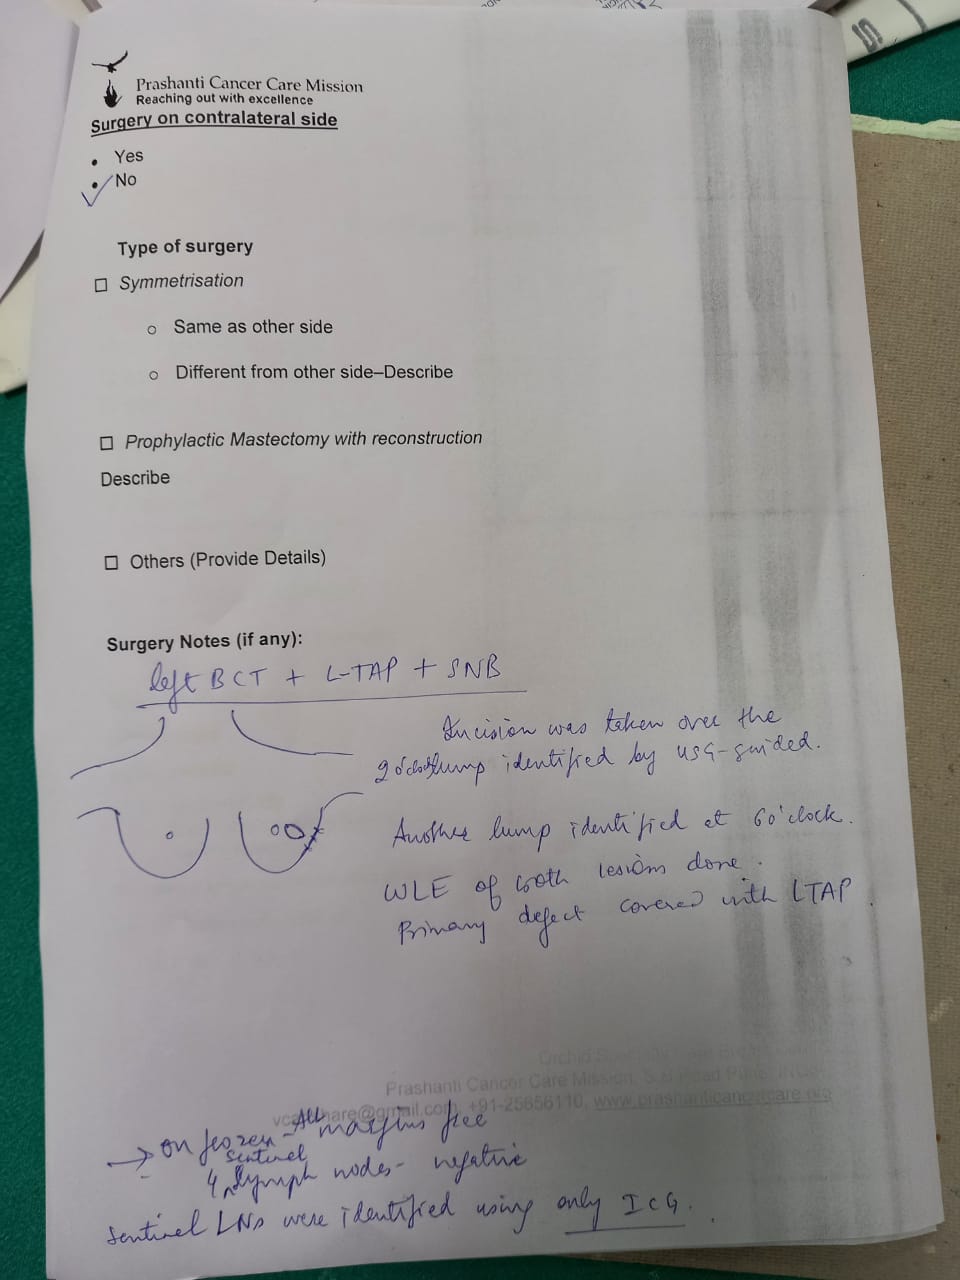 Prashanti Cancer Care Mission
Reaching out with excellence
Surgery on contralateral side
• Yes
• No
Type of surgery
☐ Symmetrisation
o Same as other side
o Different from other side–Describe
☐ Prophylactic Mastectomy with reconstruction
Describe
☐ Others (Provide Details)
Surgery Notes (if any):
left BCT + L-TAP + SNB
Incision was taken over the
lump identified by USG-guided.
Another lump identified at 6 o'clock.
WLE of both lesions done.
Primary defect covered with LTAP.
Prashanti Cancer Care Mission,
+91-25656110, www.prashanticancercare.org
→ on frozen - All margins free
4 sentinel lymph nodes - negative
Sentinel LNs were identified using only ICG.